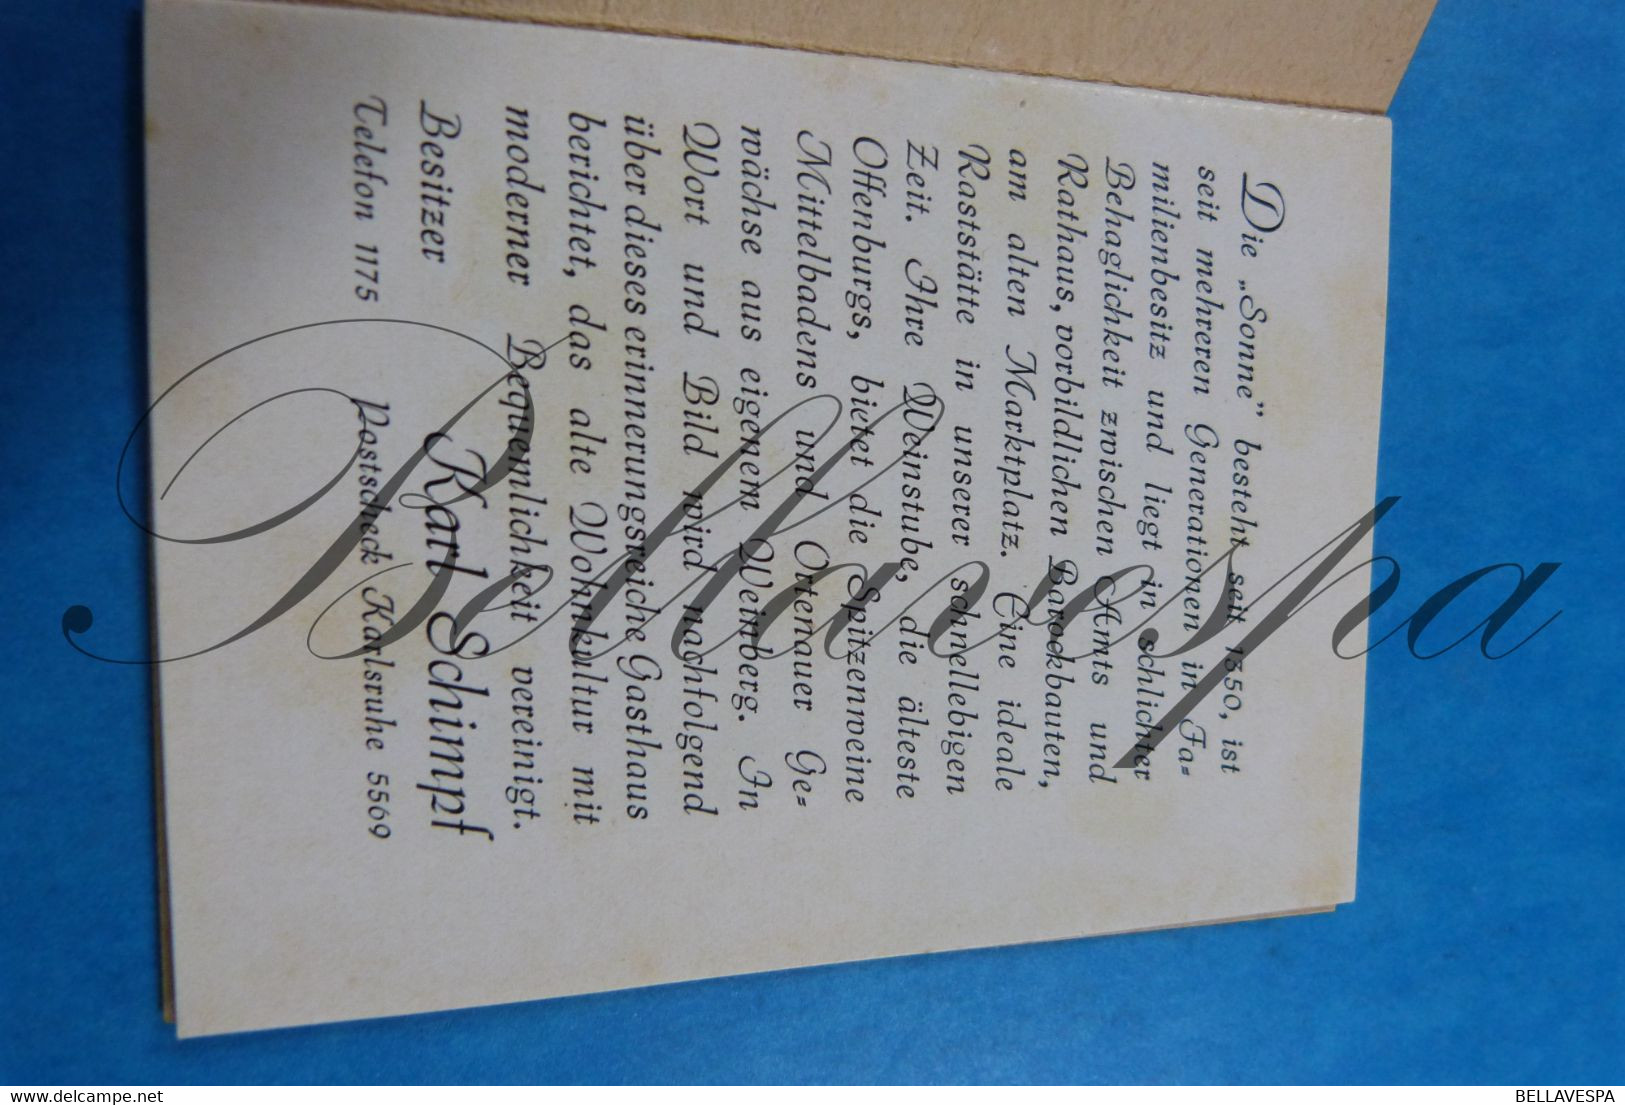 Die „Sonne” besteht seit 1350, ist
seit mehreren Generationen in Fa-
milienbesitz und liegt in schlichter
Behaglichkeit zwischen Amts und
Rathaus, vorbildlichen Barockbauten,
am alten Marktplatz. Eine ideale
Raststätte in unserer schnellebigen
Zeit. Ihre Weinstube, die älteste
Offenburgs, bietet die Spitzenweine
Mittelbadens und Ortenauer Ge-
wächse aus eigenem Weinberg. In
Wort und Bild wird nachfolgend
über dieses erinnerungsreiche Gasthaus
berichtet, das alte Wohnkultur mit
moderner Bequemlichkeit vereinigt.
Besitzer Karl Schimpf
Telefon 1175 Postscheck Karlsruhe 5569
Bellavespa
delcampe.net
BELLAVESPA